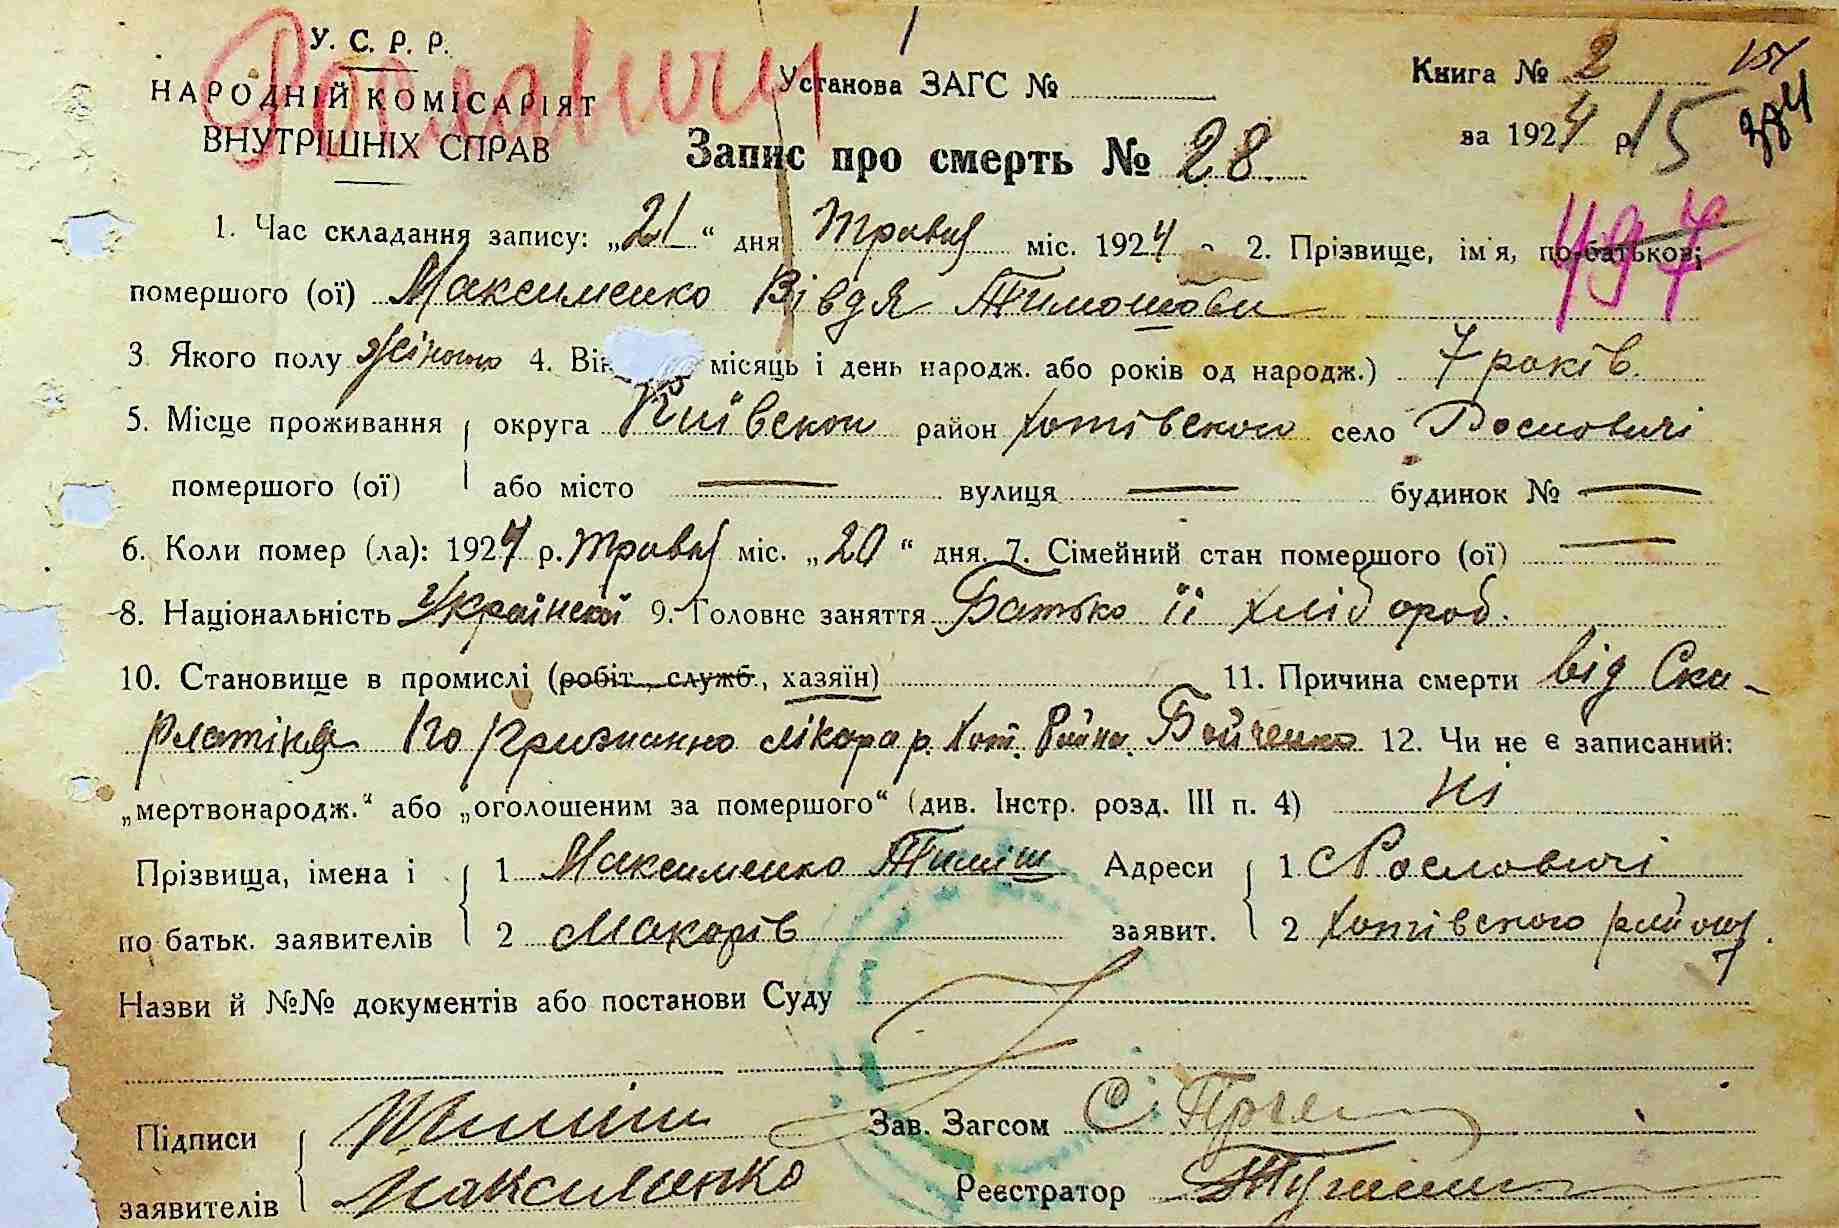 Рославичи
У. С. Р. Р.
НАРОДНІЙ КОМІСАРІЯТ
ВНУТРІШНІХ СПРАВ
1
Установа ЗАГС №
Книга № 2
за 1924 р. 15
384
Запис про смерть № 28
497
1. Час складання запису: „21“ дня Травня міс. 1924 2. Прізвище, ім'я, по-батькові
помершого (ої) Максименко Вівдя Тимошови
3 Якого полу жіночо 4. Вік місяць і день народж. або років од народж.) 7 років.
5. Місце проживання округа Київскои район Хотівского село Рословичі
помершого (ої) або місто — вулиця — будинок № —
6. Коли помер (ла): 1924 р. Травня міс. „20“ дня. 7. Сімейний стан помершого (ої) —
8. Національність Українскоі 9. Головне заняття Батько її хлібороб.
10. Становище в промислі (робіт., служб., хазяїн) 11. Причина смерти від Ска-
рлатіна По признанню лікара р. Хот. Война. Бойченко 12. Чи не є записаний:
„мертвонародж.“ або „оголошеним за помершого“ (див. Інстр. розд. III п. 4) Ні
Прізвища, імена і 1 Максименко Тиміш Адреси 1 с Рословичі
по батьк. заявителів 2 Макорів заявит. 2 Хотівского району.
Назви й №№ документів або постанови Суду
Підписи Тиміш Зав. Загсом
заявителів Максименко Реєстратор